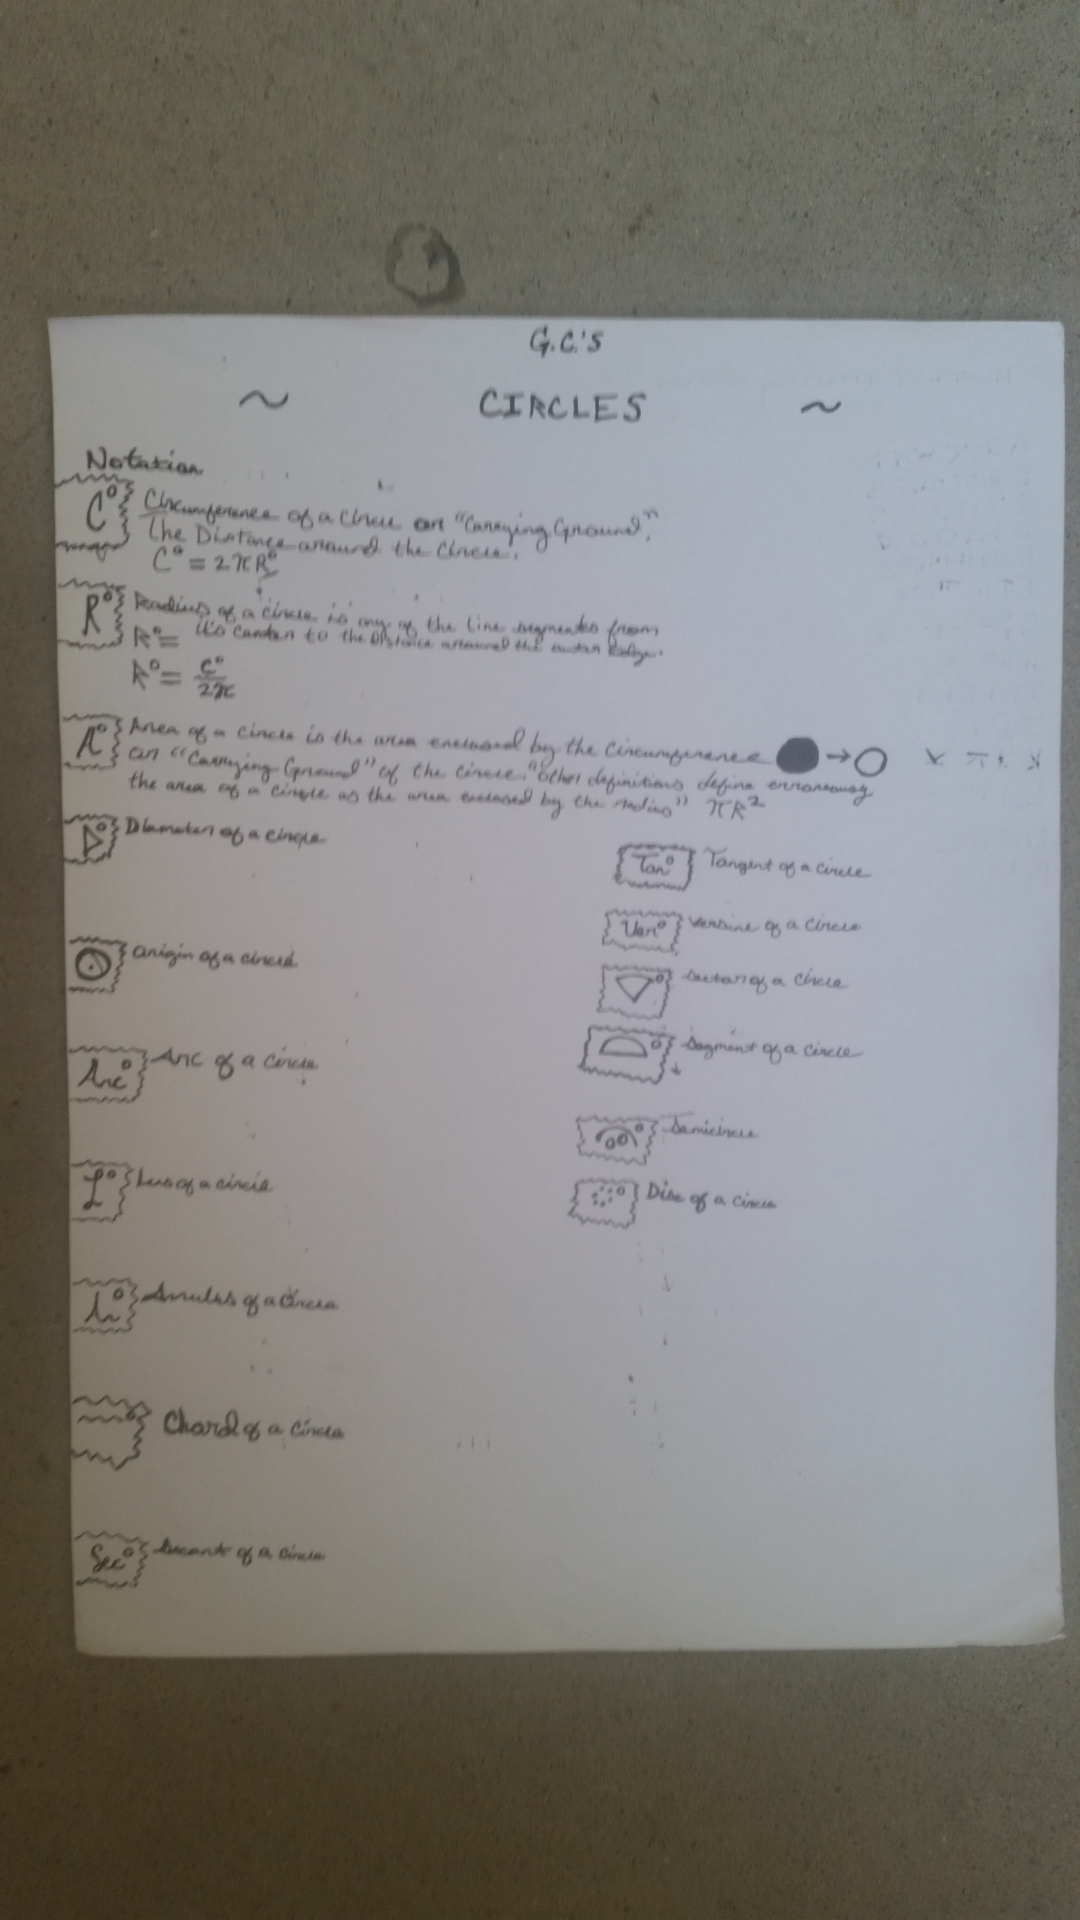 G.C.'S
~ CIRCLES ~
Notation
C° Circumference of a circle or "Carrying Ground",
The Distance around the circle.
C° = 2πR°
R° Radius of a circle is any of the line segments from
R° = it's center to the Distance around the outer Edge.
R° = C°/2π
A° Area of a circle is the area enclosed by the circumference → 
or "Carrying Ground" of the circle. "Other definitions define erroneously
the area of a circle as the area enclosed by the radius" πR²
Diameter of a circle
Origin of a circle
Arc° Arc of a circle
L° Lens of a circle
Annulus of a circle
Chord of a circle
Sec° Secant of a circle
Tan° Tangent of a circle
Ver° Versine of a circle
Sector of a circle
Segment of a circle
Semicircle
Disc of a circle